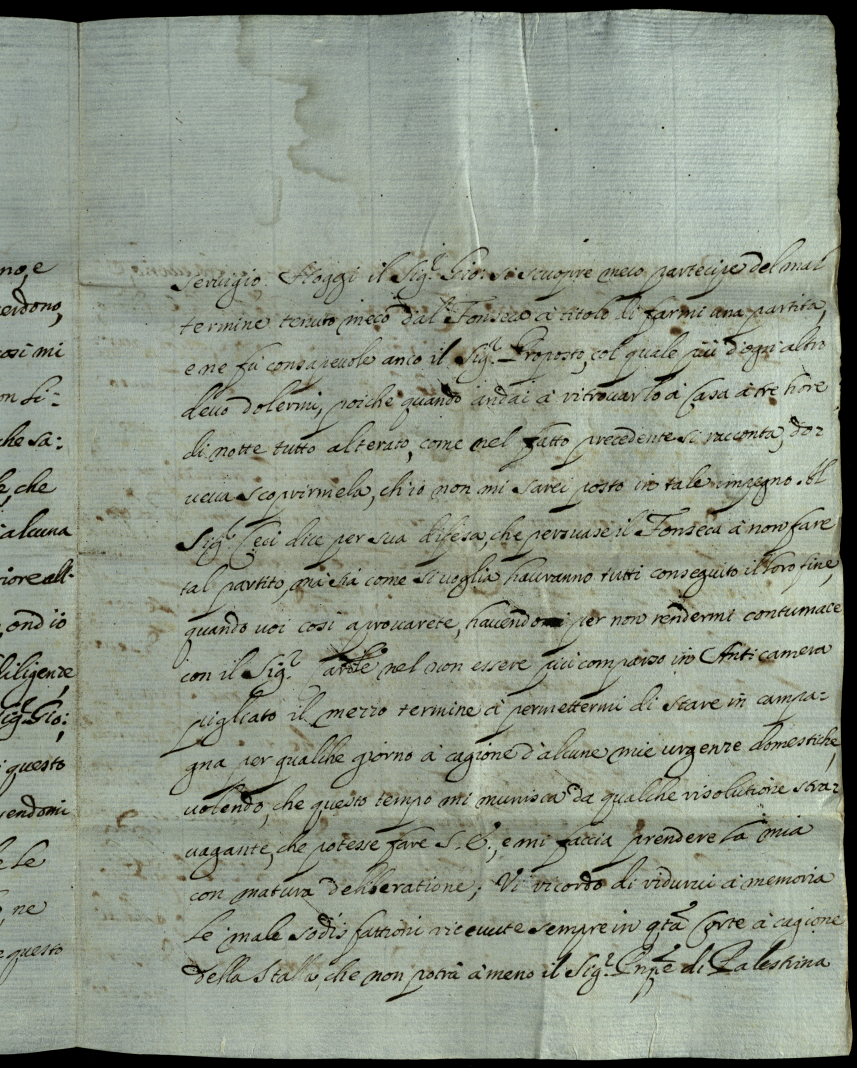 no, e
perdono,
così mi
on si=
che sa:
e, che
alcuna
riore all'
, ond'io
diligenze,
Sig.r Gio:
i questo
vendomi
e le
, ne
e questo
servigio. Hoggi il Sig.r Gio: si scuopre meco partecipe del mal
termine tenuto meco dal Fonseca à titolo di farmi una partita,
e ne fù consapevole anco il Sig.r Proposto, col quale più d'ogni altro
devo dolermi, poiche quando andai à ritrovarlo à Casa à tre hore
di notte tutto alterato, come nel fatto precedente si racconta, do=
veva scoprirmela, ch'io non mi sarei posto in tale impegno. Il
Sig.r Ceci dice per sua difesa, che persuase il Fonseca à non fare
tal partito, mà sia come si voglia havranno tutti conseguito il loro fine,
quando voi così aprovarete, havendomi per non rendermi contumace
con il Sig.r nel non essere più comparso in Anticamera
pigliato il mezzo termine à permettermi di stare in campa=
gna per qualche giorno à cagione d'alcune mie urgenze domestiche,
volendo, che questo tempo mi munisca da qualche risolutione stra=
vagante, che potesse fare S. E., e mi faccia prendere la mia
con matura deliberatione; Vi ricordo di ridurvi à memoria
le male sodisfattioni ricevute sempre in q.ta Corte à cagione
della Stalla, che non potrà à meno il Sig.r Pnpe di Palestrina